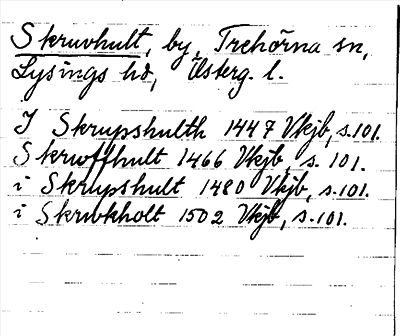 Skruvhult, by, Trehörna sn,
Lysings hd, Österg. l.
I Skrupshulth 1447 Vkjb, s.101.
Skrwffhult 1466 Vkjb, s. 101.
i Skrupshult 1480 Vkjb, s.101.
i Skrwkholt 1502 Vkjb, s.101.